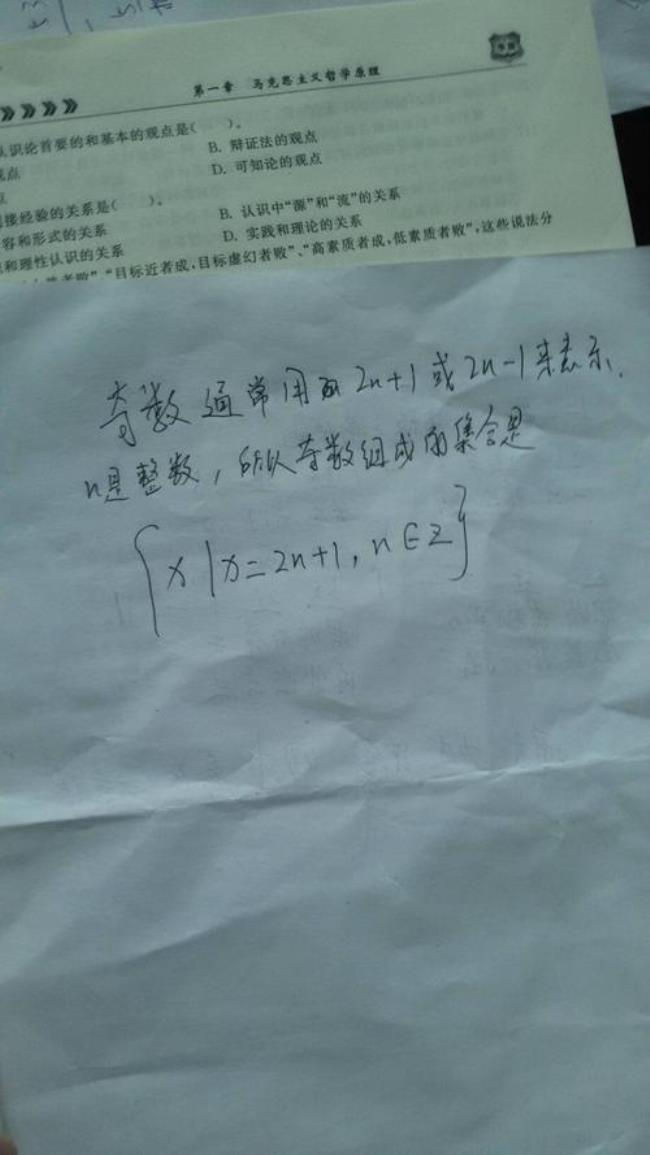 第一章 马克思主义哲学原理
认识论首要的和基本的观点是( )。
观点
B. 辩证法的观点
点
D. 可知论的观点
间接经验的关系是( )。
容和形式的关系
B. 认识中“源”和“流”的关系
和理性认识的关系
D. 实践和理论的关系
“目标近者成,目标虚幻者败”、“高素质者成,低素质者败”,这些说法分
奇数通常用 2n+1 或 2n-1 来表示.
n是整数, 所以奇数组成的集合是
{x|x=2n+1, n∈Z}